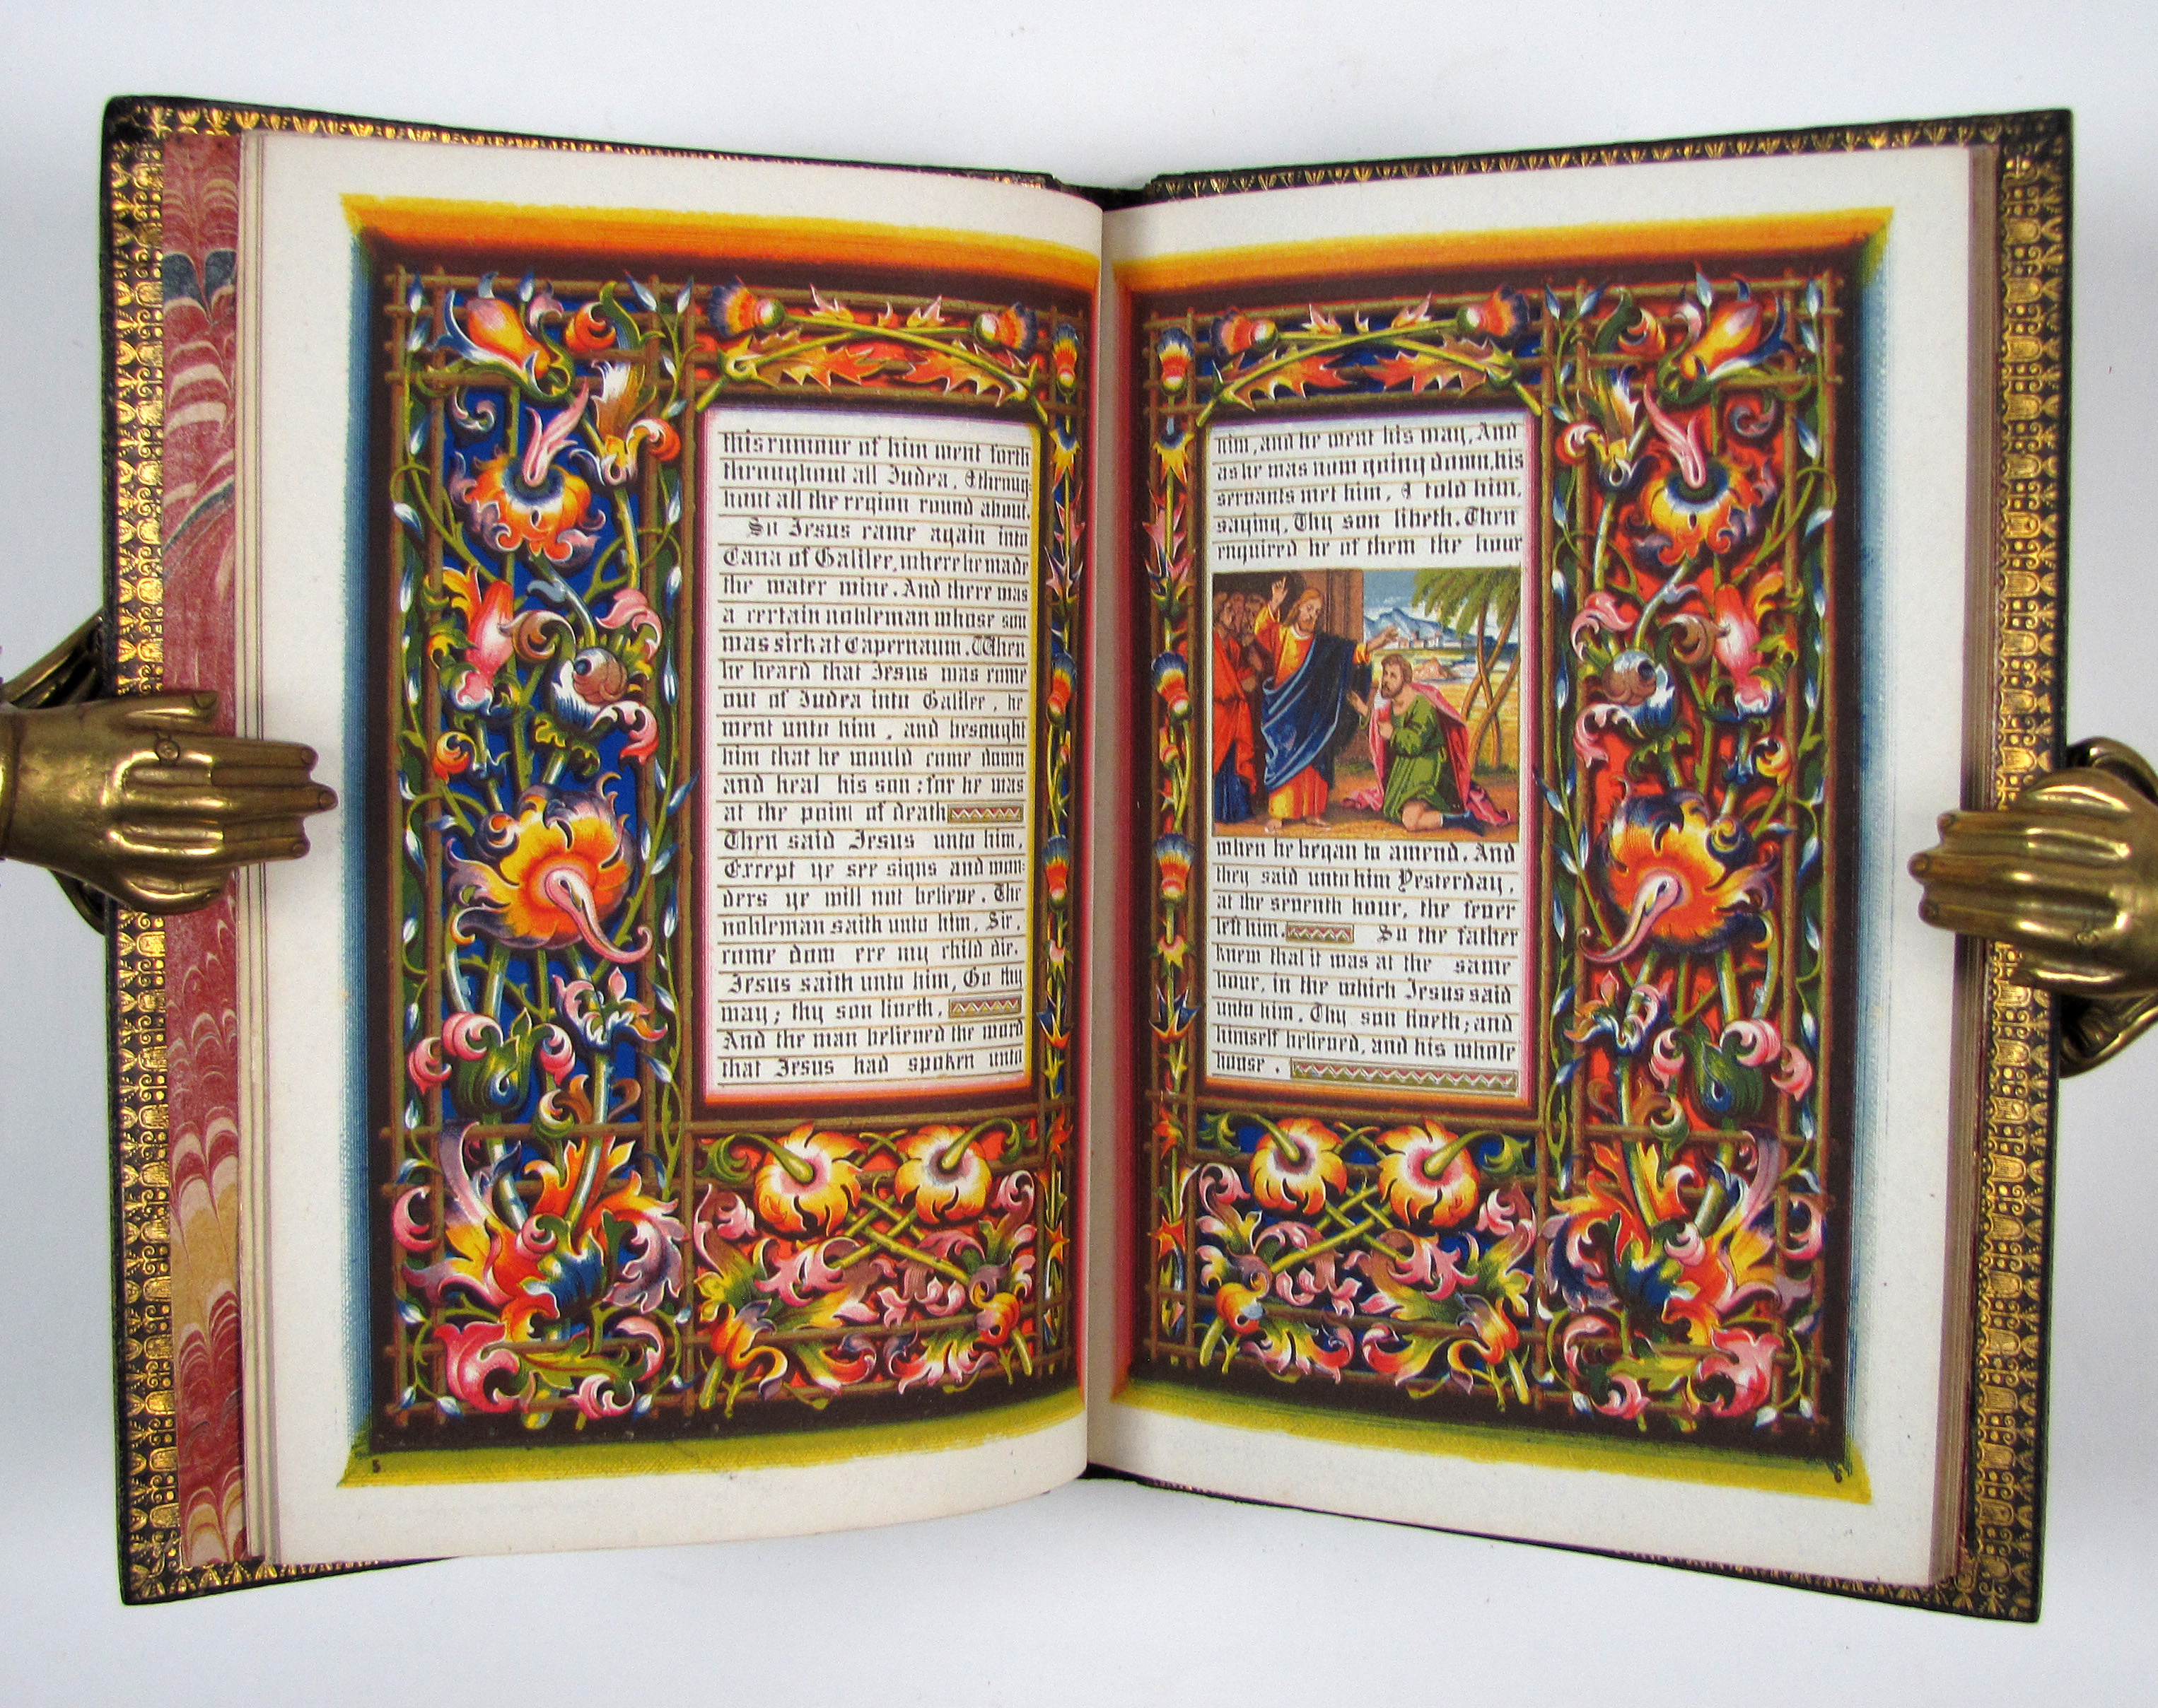 this rumour of him went forth
throughout all Judea, & throug:
hout all the region round about.
So Jesus came again into
Cana of Galilee, where he made
the water wine. And there was
a certain nobleman whose son
was sick at Capernaum. When
he heard that Jesus was come
out of Judea into Galilee, he
went unto him, and besought
him that he would come down
and heal his son: for he was
at the point of death
Then said Jesus unto him,
Except ye see signs and won:
ders ye will not believe. The
nobleman saith unto him, Sir,
come dow ere my child die.
Jesus saith unto him, Go thy
way; thy son liveth.
And the man believed the word
that Jesus had spoken unto
5
him, and he went his way, And
as he was now going down, his
servants met him, & told him,
saying, Thy son liveth. Then
enquired he of them the hour
when he began to amend. And
they said unto him Yesterday,
at the seventh hour, the fever
left him. So the father
knew that it was at the same
hour, in the which Jesus said
unto him, Thy son liveth; and
himself believed, and his whole
house.
6